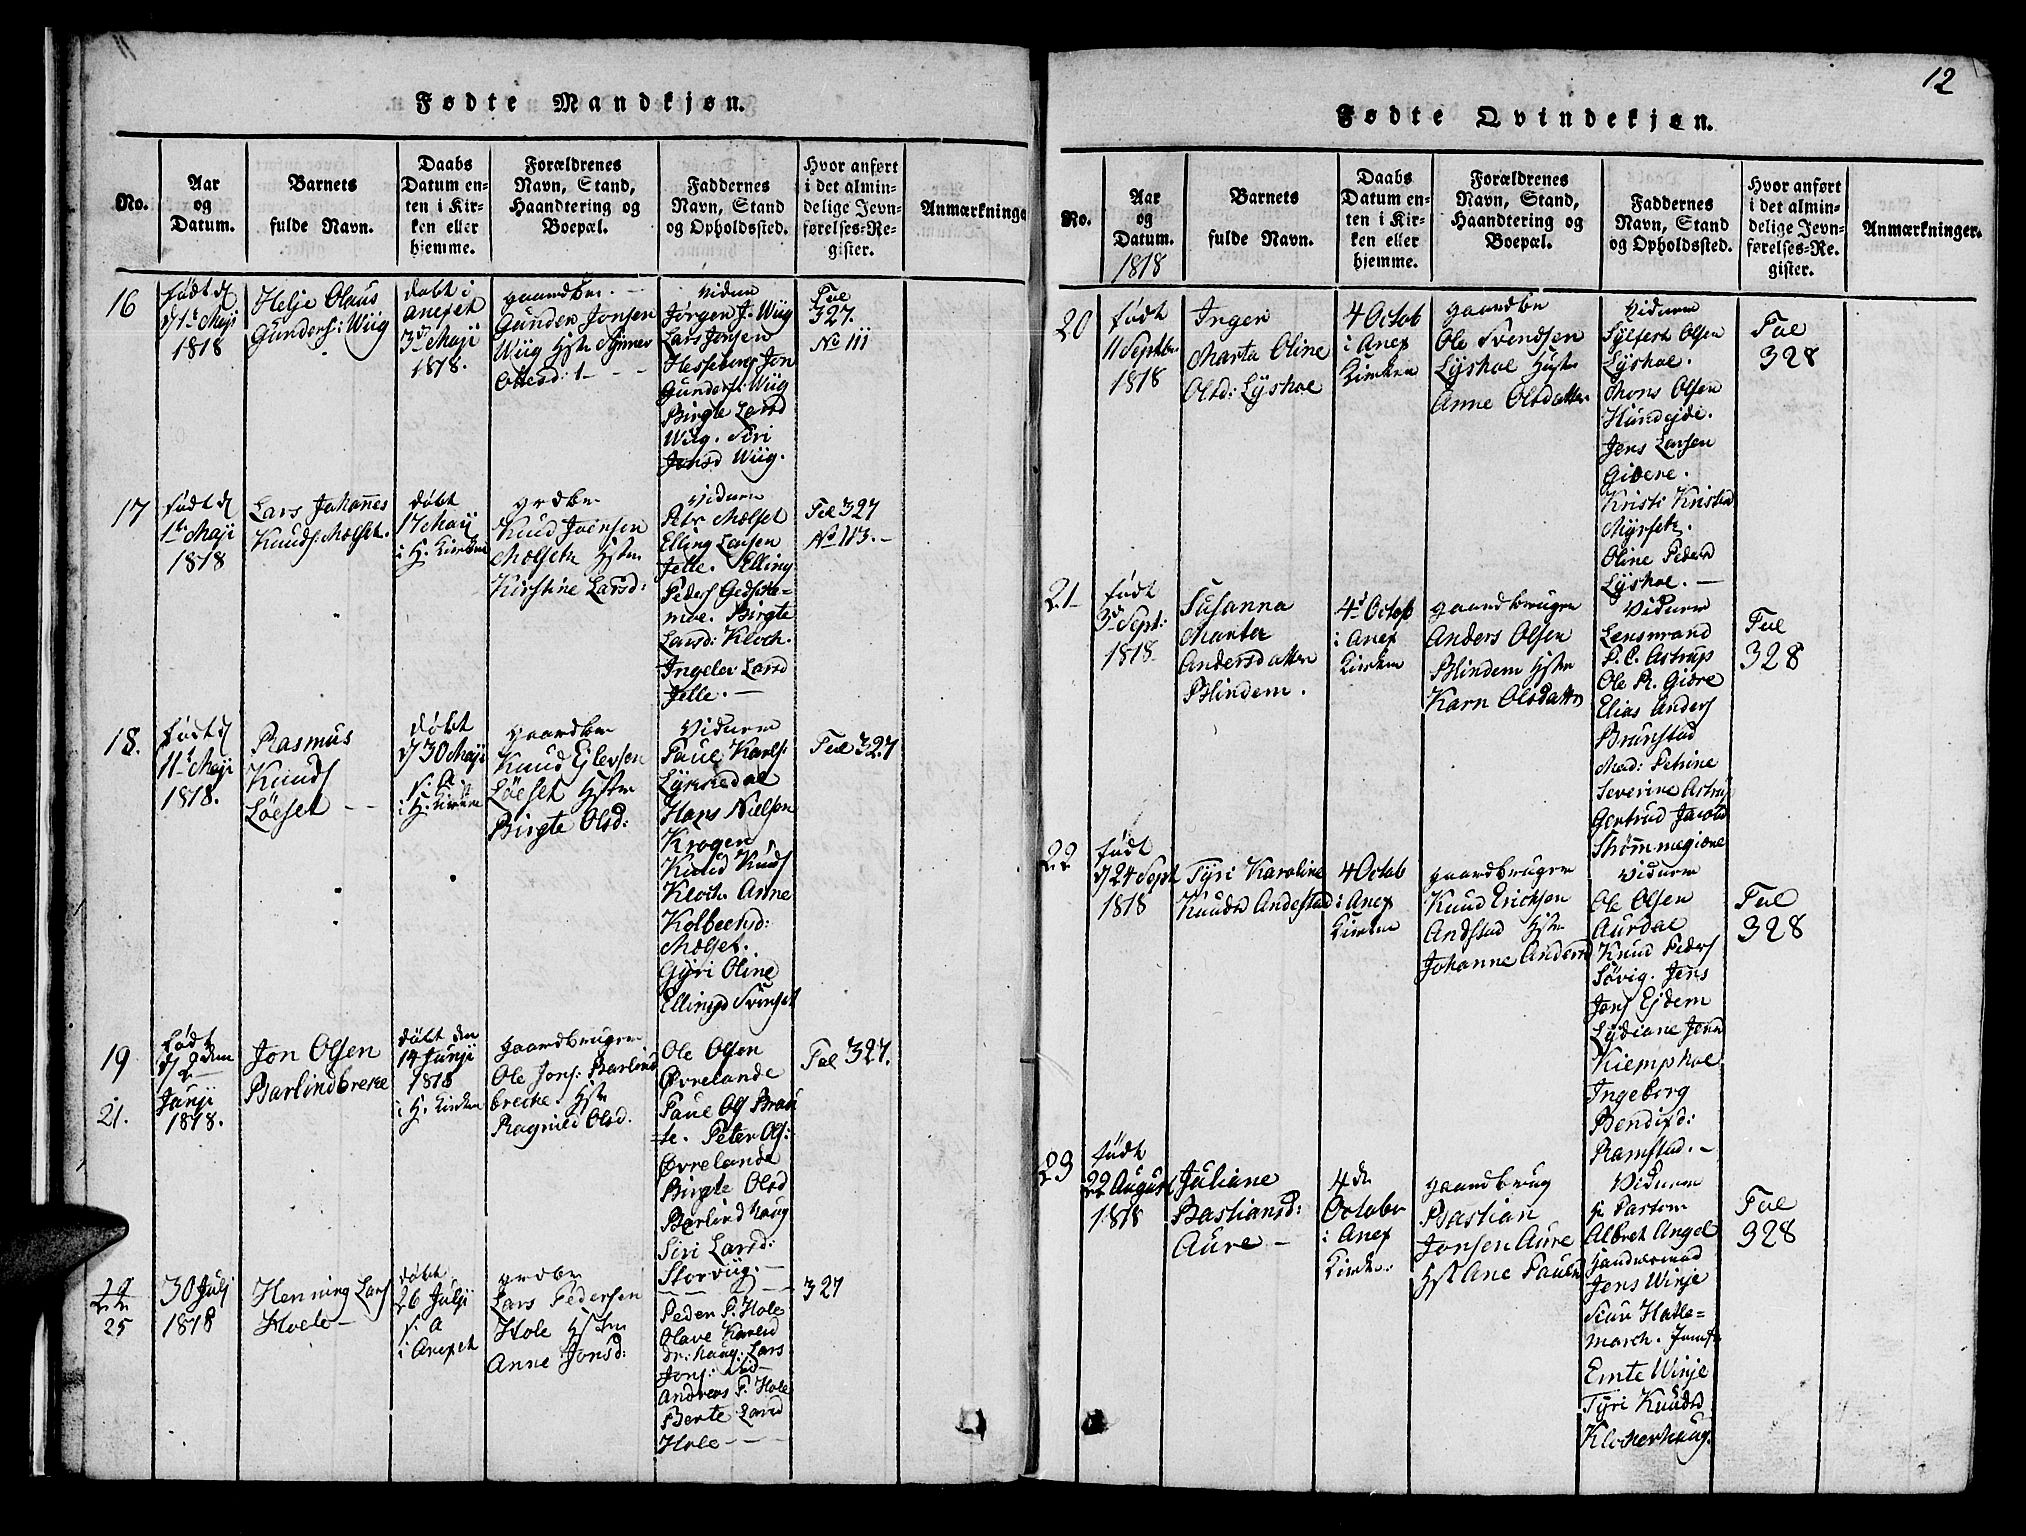 Fødte Mandkjøn.
No.
Aar
og
Datum.
Barnets
fulde Navn.
Daabs
Datum en-
ten i Kir-
ken eller
hjemme.
Forældrenes
Navn, Stand,
Haandtering og
Boepæl.
Faddernes
Navn, Stand
og Opholdssted.
Hvor anført
i det almin-
delige Jevn-
førelses-Re-
gister.
Anmærkninge
16
født d
1te Maji
1818
Helje Olaus
Gunders: Wiig
døbt i
anexet
3d Maji
1818.
gaardbr.
Gunder Jonsen
Wiig Hstr
Viduer
Jørgen J. Wiig
Lars Jonsen
Hesseberg Jon
Gunders: Wiig
Birgte Larsd
Wiig. Siri
Jonsd Wiig.
Fol
327.
No 111
17
født d
1te Maji
1818
Lars Johannes
Knuds: Molset.
døbt
17 Maij
i H. Kirken
grdbr
Knud Joensen
Molseth Hstr
Kirstine Larsd:
Viduer
Petr Molset
Elling Larsen
Jelle. Elling
Peders
moe. Birgte
Larsd: Kloch.
Ingeler Larsd
Jelle. —
Fol 327
No 113. —
18.
født d
11te Maji
1818.
Rasmus
Knuds
Løeset
døbt
d 30 Maji
s. A.
i H. Kirken
gaardbr
Knud Ejlevsen
Løeset Hstr
Birgte Olsd:
Viduer
Paul Karls:
Lyksedal
Hans Nielsen
Krogen
Knud Knuds
Kloch Anne
Kolbeensd:
Molset.
Gyri Oline
Ellingsd Svinset
Fol 327
19
21.
født
d 2den
Junji
1818.
Jon Olsen
Barlindbreke
døbt den
14 Junji
1818
i H. Kirken
gaardbruger
Ole Jons: Barlind
breke. Hstr
Ragnied Olsd.
Ole Olsen
Øvrelande
Paul Ols Brau
te. Peter Ols:
Øvrelande
Birgte Olsd
Barlindhaug
Siri Larsd:
Storviig. —
Fol 327.
25
30 Julj
1818
Henning Lars
Hoele —
døbt
26 Julji
s. a
i Anexet
grdbr
Lars Pedersen
Hole Hstr
Anne Jonsd:
Peder P. Hole
Olave Karlsd
haug. Lars
Jons:
Andreas P. Hole
Berte Larsd
Hole
327
12
Fødte Qvindekjøn.
No.
Aar
og
Datum.
1818
Barnets
fulde Navn.
Daabs
Datum en-
ten i Kir-
ken eller
hjemme.
Forældrenes
Navn, Stand,
Haandtering og
Boepæl.
Faddernes
Navn, Stand
og Opholdssted.
Hvor anført
i det almin-
delige Jevn-
førelses-Re-
gister.
Anmærkninger.
20
født
11 Septbr
1818
Inger
Marta Oline
Olsd: Lyshol
4 Octob
i Anex
Kirken
gaardbr
Ole Svendsen
Lyshol Hstr
Anne Olsdatter
Viduer
Sylfest Olsen
Lyshol.
Mons Olsen
Hundejde.
Jens Larsen
Giøere.
Kristi Kristsd
Myrseth.
Oline Pedersd
Lyshol. —
Fol
328
21
født
3d Sept:
1818
Susanna
Marta
Andersdatter
Blindem.
4d Octob
i Anex
Kirken
gaardbruger
Anders Olsen
Blindem Hstr
Karn Olsdatter
Viduer
Lensmand
P. C. Astrup
Ole R. Giøre
Elias Anders
Brunstad
Mad: Petrine
Severine Astrup
Gertrud Jacobsd
Fol
328
22
født
d 24 Sept
1818
Tyri Karoline
Knudsd Andestad
4 Octob
i Anex
Kirken
gaardbruger
Knud Erichsen
Andstad Hstr
Johanne Andersd
Viduer
Ole Olsen
Aurdal
Knud Peders
Søvig. Jens
Jons Ejdem
Lydiane Jonsd
Kiemphol
Ingeborg
Bendixd:
Ramstad. —
Fol
328
23
født
22 August
1818
Juliane
Bastiansd:
Aure —
4 de
October
i Anex
Kirken:
gaardbrug
Bastian
Jonsen Aure
Hst Ane Paulsd
Viduer
hr Pastor
Albret Angel
Handelsmand
Jens Winje
Hatle-
march. Jomfr
Emte Winje
Tyri Knudsd
Klokerhaug.
Fol
328